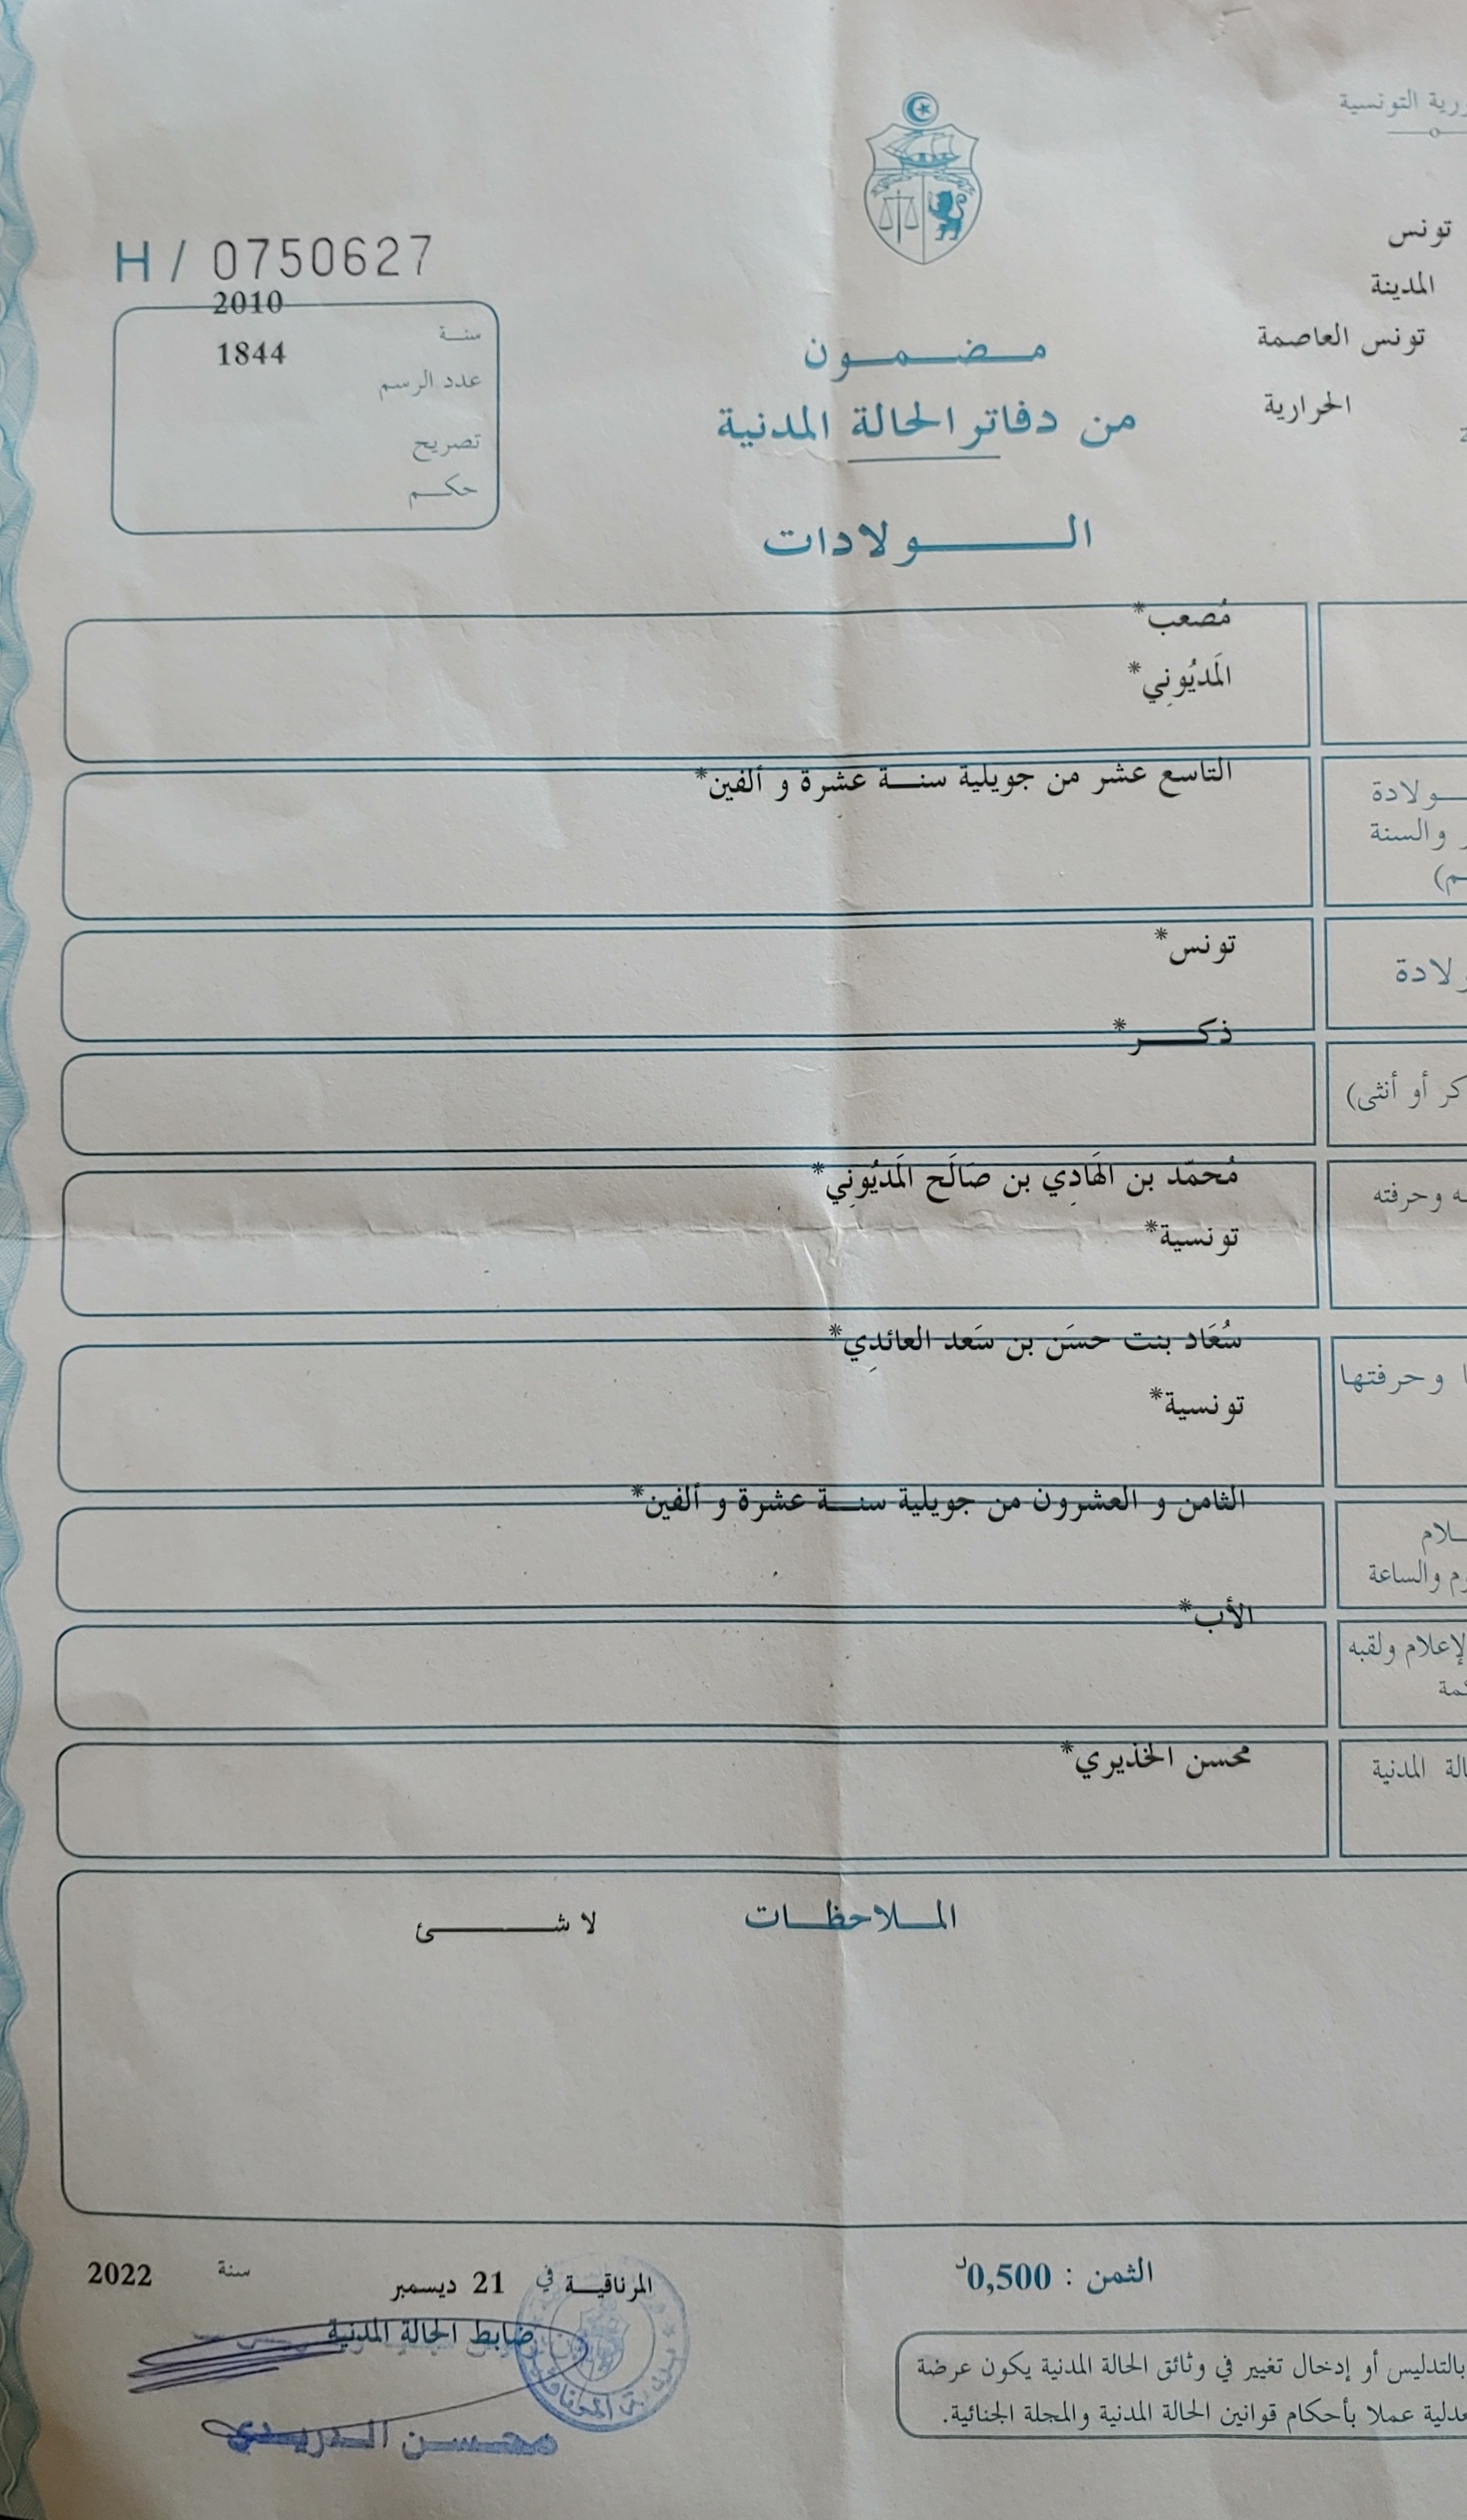 التونسية
تونس
المدينة
تونس العاصمة
الحرارية
H / 0750627
سنة 2010
عدد الرسم 1844
تصريح
حكم
مضمون
من دفاتر الحالة المدنية
الولادات
مُصعب*
المَديُونِي*
التاسع عشر من جويلية سنة عشرة و ألفين*
والسنة
تونس*
ذكر*
أو أنثى)
مُحمّد بن الهَادِي بن صَالَح المَديُونِي*
وحرفته
تونسية*
سُعَاد بنت حسَن بن سَعد العائدِي*
وحرفتها
تونسية*
الثامن و العشرون من جويلية سنة عشرة و ألفين*
والساعة
الأب*
ولقبه
محسن الخذيري*
المدنية
الملاحظات
لا شئ
الثمن : 0,500د
المرناقية في 21 ديسمبر سنة 2022
ضابط الحالة المدنية
محسن الدريدي
بالتدليس أو إدخال تغيير في وثائق الحالة المدنية يكون عرضة
عملا بأحكام قوانين الحالة المدنية والمجلة الجنائية.